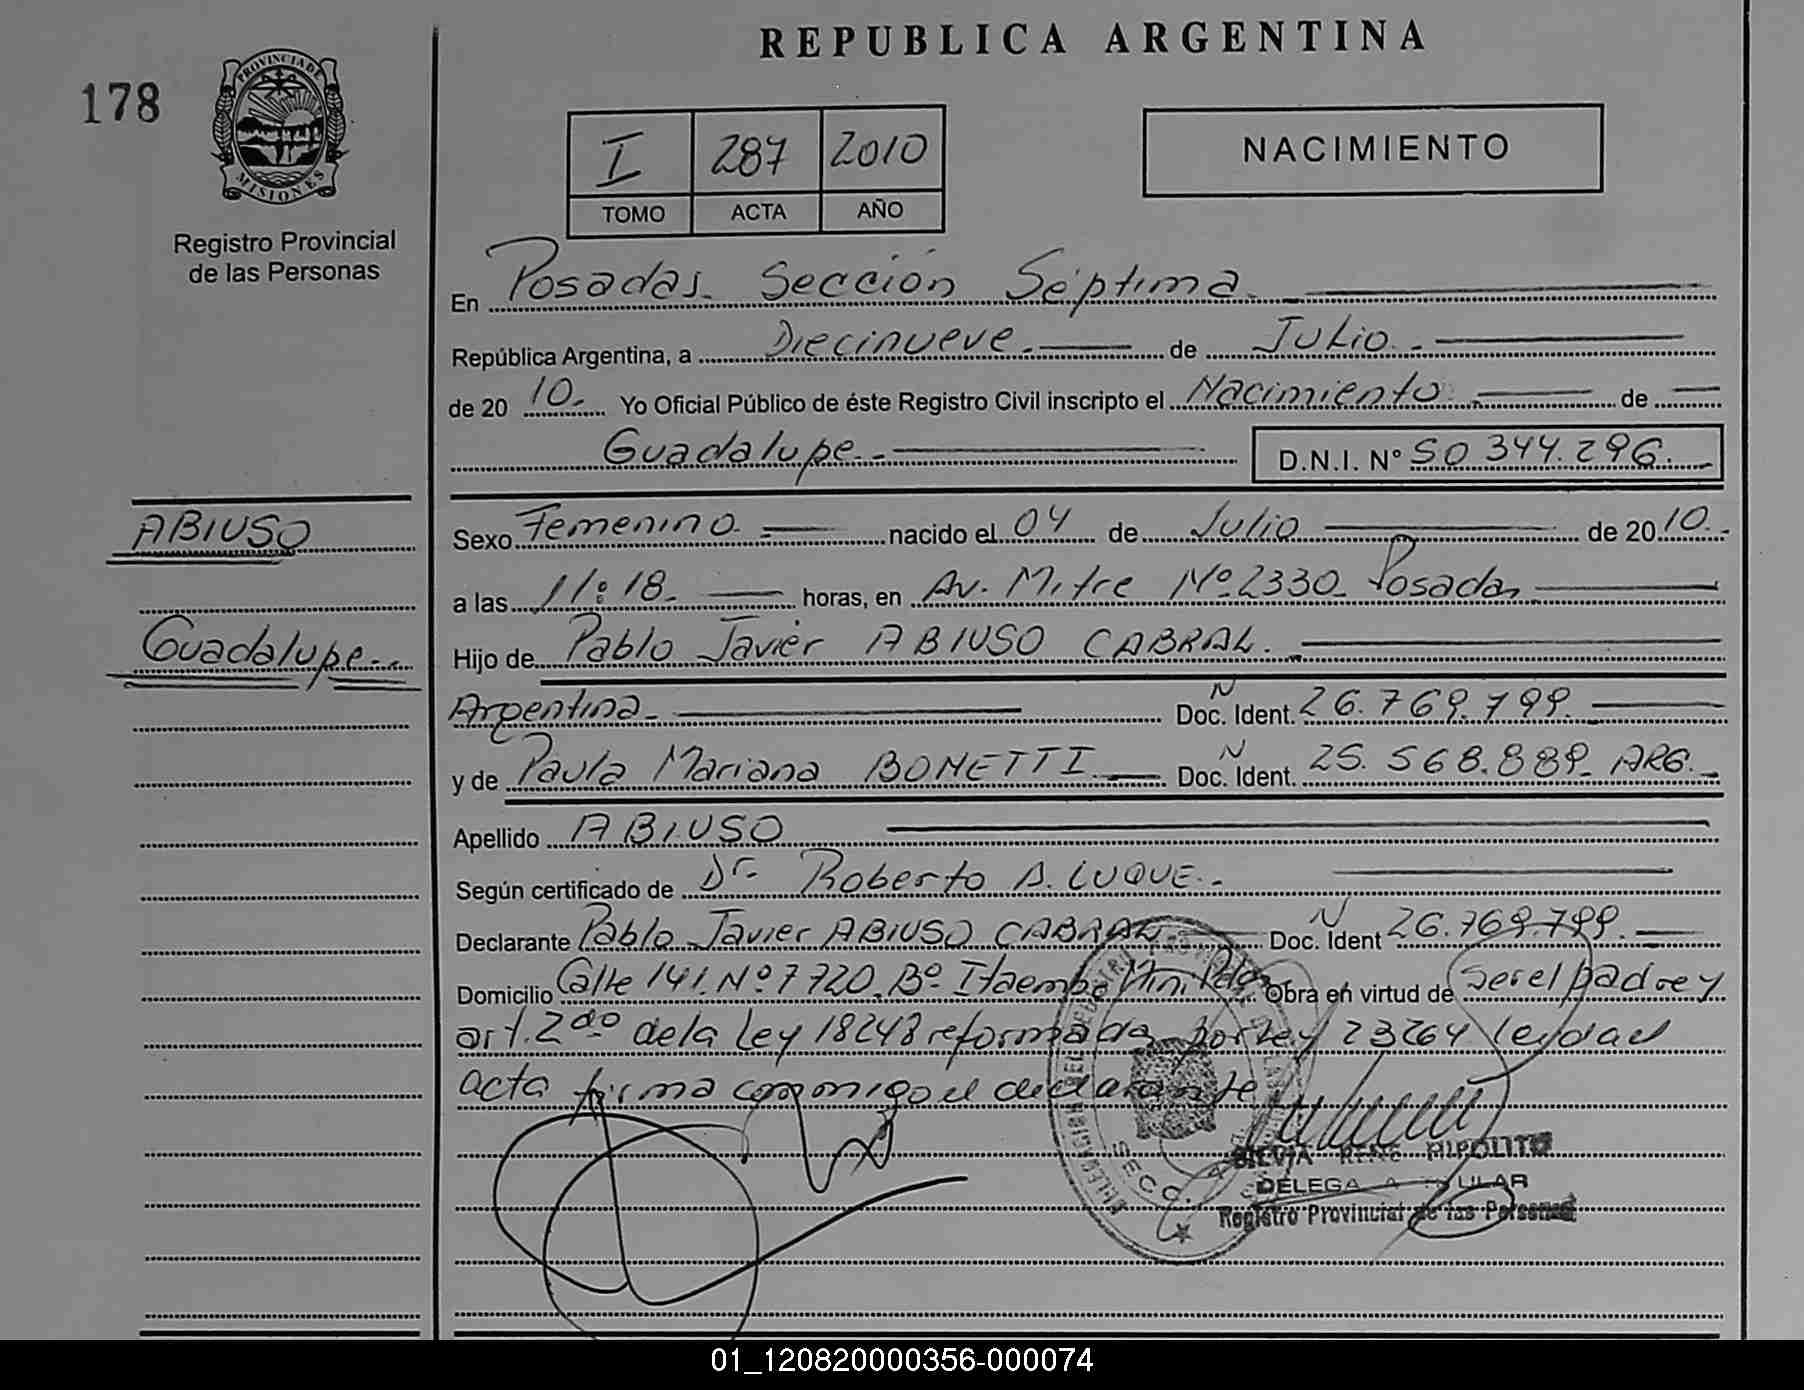 REPUBLICA ARGENTINA
178
PROVINCIA DE
MISIONES
Registro Provincial
de las Personas
I 287 2010
TOMO ACTA AÑO
NACIMIENTO
En Posadas. Sección Séptima.
República Argentina, a Diecinueve. de Julio.
de 20 10. Yo Oficial Público de éste Registro Civil inscripto el Nacimiento de
Guadalupe. D.N.I. N° 50 344.296.
ABIUSO
Guadalupe
Sexo Femenino. nacido el 04 de Julio de 20 10.
a las 11:18. horas, en Av. Mitre Nº 2330. Posadas
Hijo de Pablo Javier ABIUSO CABRAL.
Argentina. N Doc. Ident. 26.769.799.
y de Paula Mariana BONETTI. N Doc. Ident. 25.568.889. ARG.
Apellido ABIUSO
Según certificado de Dr. Roberto A. LUQUE.
Declarante Pablo Javier ABIUSO CABRAL N Doc. Ident 26.769.799.
Domicilio Calle 141. Nº 7720. Bº Itaembe Mini Pdas. Obra en virtud de ser el padre y
art. 2do de la Ley 18248 reformada por Ley 23264 leida el
acta firma conmigo el declarante
SECC.
SILVIA RENE HIPOLITO
DELEGA A TULAR
Registro Provincial de las Personas
01_120820000356-000074